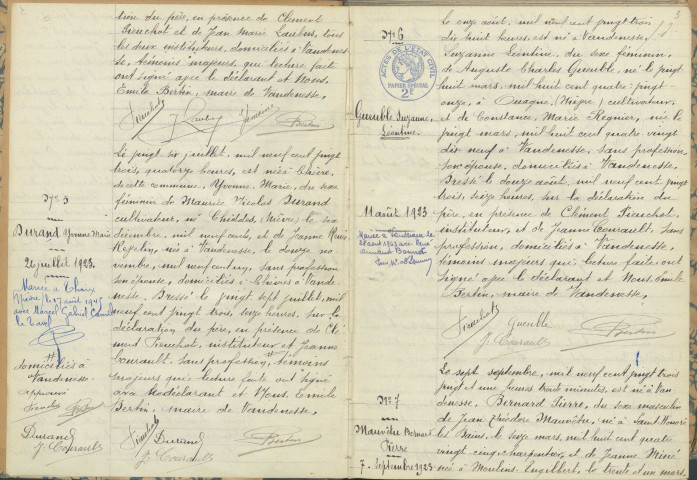 tion du père, en présence de Clément
Pieuchot et de Jean Marie Laubin, tous
les deux instituteurs, domiciliés à Vandenes-
se, témoins majeurs, qui lecture faite
ont signé avec le déclarant et Nous,
Emile Bertin, maire de Vandenesse.
Bertin
N° 5
Durand Yvonne Marie
26 juillet 1923.
Mariée à
le 7 août 1945
avec Marcel Gabriel
domiciliés à
Vandenesse
approuvé
Durand
J. Courault
Le vingt six juillet, mil neuf cent vingt
trois, quatorze heures, est née à
de cette commune, Yvonne Marie, du sexe
féminin de Maurice Nicolas Durand
cultivateur, né Chiddes, (Nièvre) le six
décembre, mil neuf cent, et de Jeanne
née à Vandenesse, le douze no
vembre, mil neuf cent un, sans profession
son épouse, domiciliés à Vandenes-
se. Dressé le vingt sept juillet, mil
neuf cent vingt trois, seize heures, sur la
déclaration du père, en présence de Clé
ment Pieuchot, instituteur et Jeanne
Courault, sans profession, témoins
majeurs que lecture faite ont signé
avec le déclarant et Nous, Emile
Bertin, maire de Vandenesse.
Durand
J. Courault
Bertin
N° 6
ACTES DE L'ETAT CIVIL
PAPIER SPÉCIAL
2F
Gueuble Suzanne,
Léontine
11 août 1923
Mariée à Vandenesse le
1943 avec René
Armand
Le onze août, mil neuf cent vingt trois
dix huit heures, est née à Vandenesse,
Suzanne Léontine, du sexe féminin,
de Auguste Charles Gueuble, né le vingt
huit mars, mil huit cent quatre-vingt
onze, à Ouagne, (Nièvre) cultivateur,
et de Constance Marie Regnier, née le
vingt mars, mil huit cent quatre vingt
dix neuf à Vandenesse, sans profession,
son épouse, domiciliés à Vandenesse.
Dressé le douze août, mil neuf cent vingt
trois, seize heures, sur la déclaration du
père, en présence de Clément Pieuchot,
instituteur, et de Jeanne Courault, sans
profession, domiciliés à Vandenesse,
témoins majeurs qui lecture faite ont
signé avec le déclarant et Nous, Emile
Bertin, maire de Vandenesse.
Gueuble
J. Courault
Bertin
N° 7
Mauvière Bernard
Pierre
7 Septembre 1923
Le sept septembre, mil neuf cent vingt trois
vingt et une heures trente minutes, est né à Van
denesse, Bernard Pierre, du sexe masculin
de Jean Théodore Mauvière, né à Saint Honoré
les Bains, le seize mars, mil huit cent quatre
vingt cinq, charpentier, et de Jeanne Miné
née à Moulins-Engilbert, le trente et un mars,